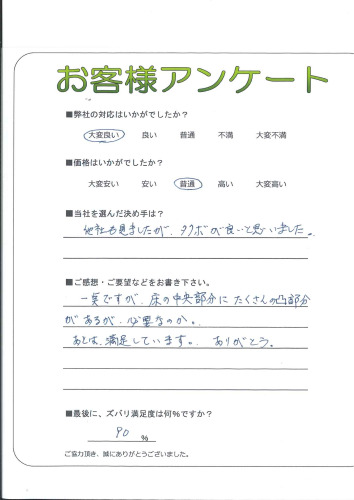 お客様アンケート
■弊社の対応はいかがでしたか?
大変良い 良い 普通 不満 大変不満
■価格はいかがでしたか?
大変安い 安い 普通 高い 大変高い
■当社を選んだ決め手は?
他社も見ましたが、タクボが良いと思いました。
■ご感想・ご要望などをお書き下さい。
一点ですが、床の中央部分にたくさんの凸部分
があるが、必要なのか。
あとは、満足しています。ありがとう。
■最後に、ズバリ満足度は何%ですか?
90 %
ご協力頂き、誠にありがとうございました。